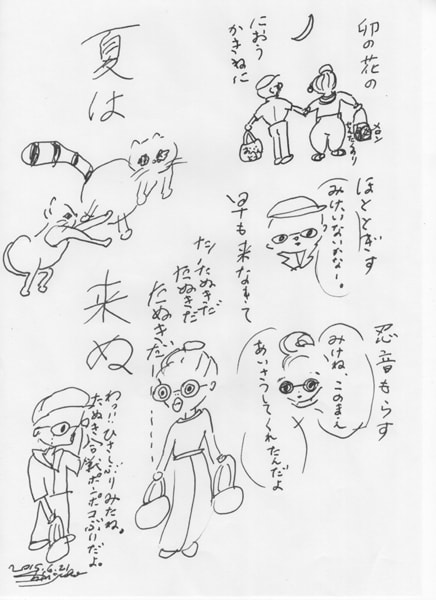 卯の花の
におう
かきねに
メロン
ほととぎす
みけ、いないなー。
早も来なきて
忍音もらす
みけね、このまえ
あいさつしてくれたんだよ
夏は
来ぬ
たぬきだ
たぬきだ
たぬきだ!
わっ!!ひさしぶりみたね。
たぬき合戦ポンポコぶりだよ。
2015.6.21